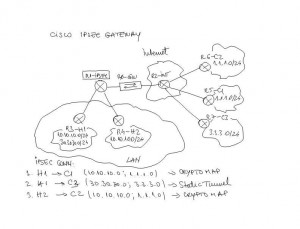 CISCO IPSEC GATEWAY
Internet
R6-C2
1.1.1.0/24
R1-IPSEC
R2-INT
R5-C1
1.1.1.0/24
R3-H1
10.10.10.0/24
30.30.30.0/24
R4-H2
10.10.10.0/24
3.1.3.0/24
LAN
IPSEC CONN:
1. H1 → C1 (10.10.10.0; 1.1.1.0) → CRYPTO MAP
2. H1 → C3 (30.30.30.0; 3.3.3.0) → Static Tunnel
3. H2 → C2 (10.10.10.0; 1.1.1.0) → CRYPTO MAP